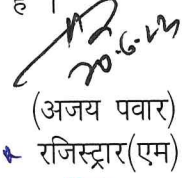 है ।
20.6.23
(अजय पवार)
रजिस्ट्रार(एम)